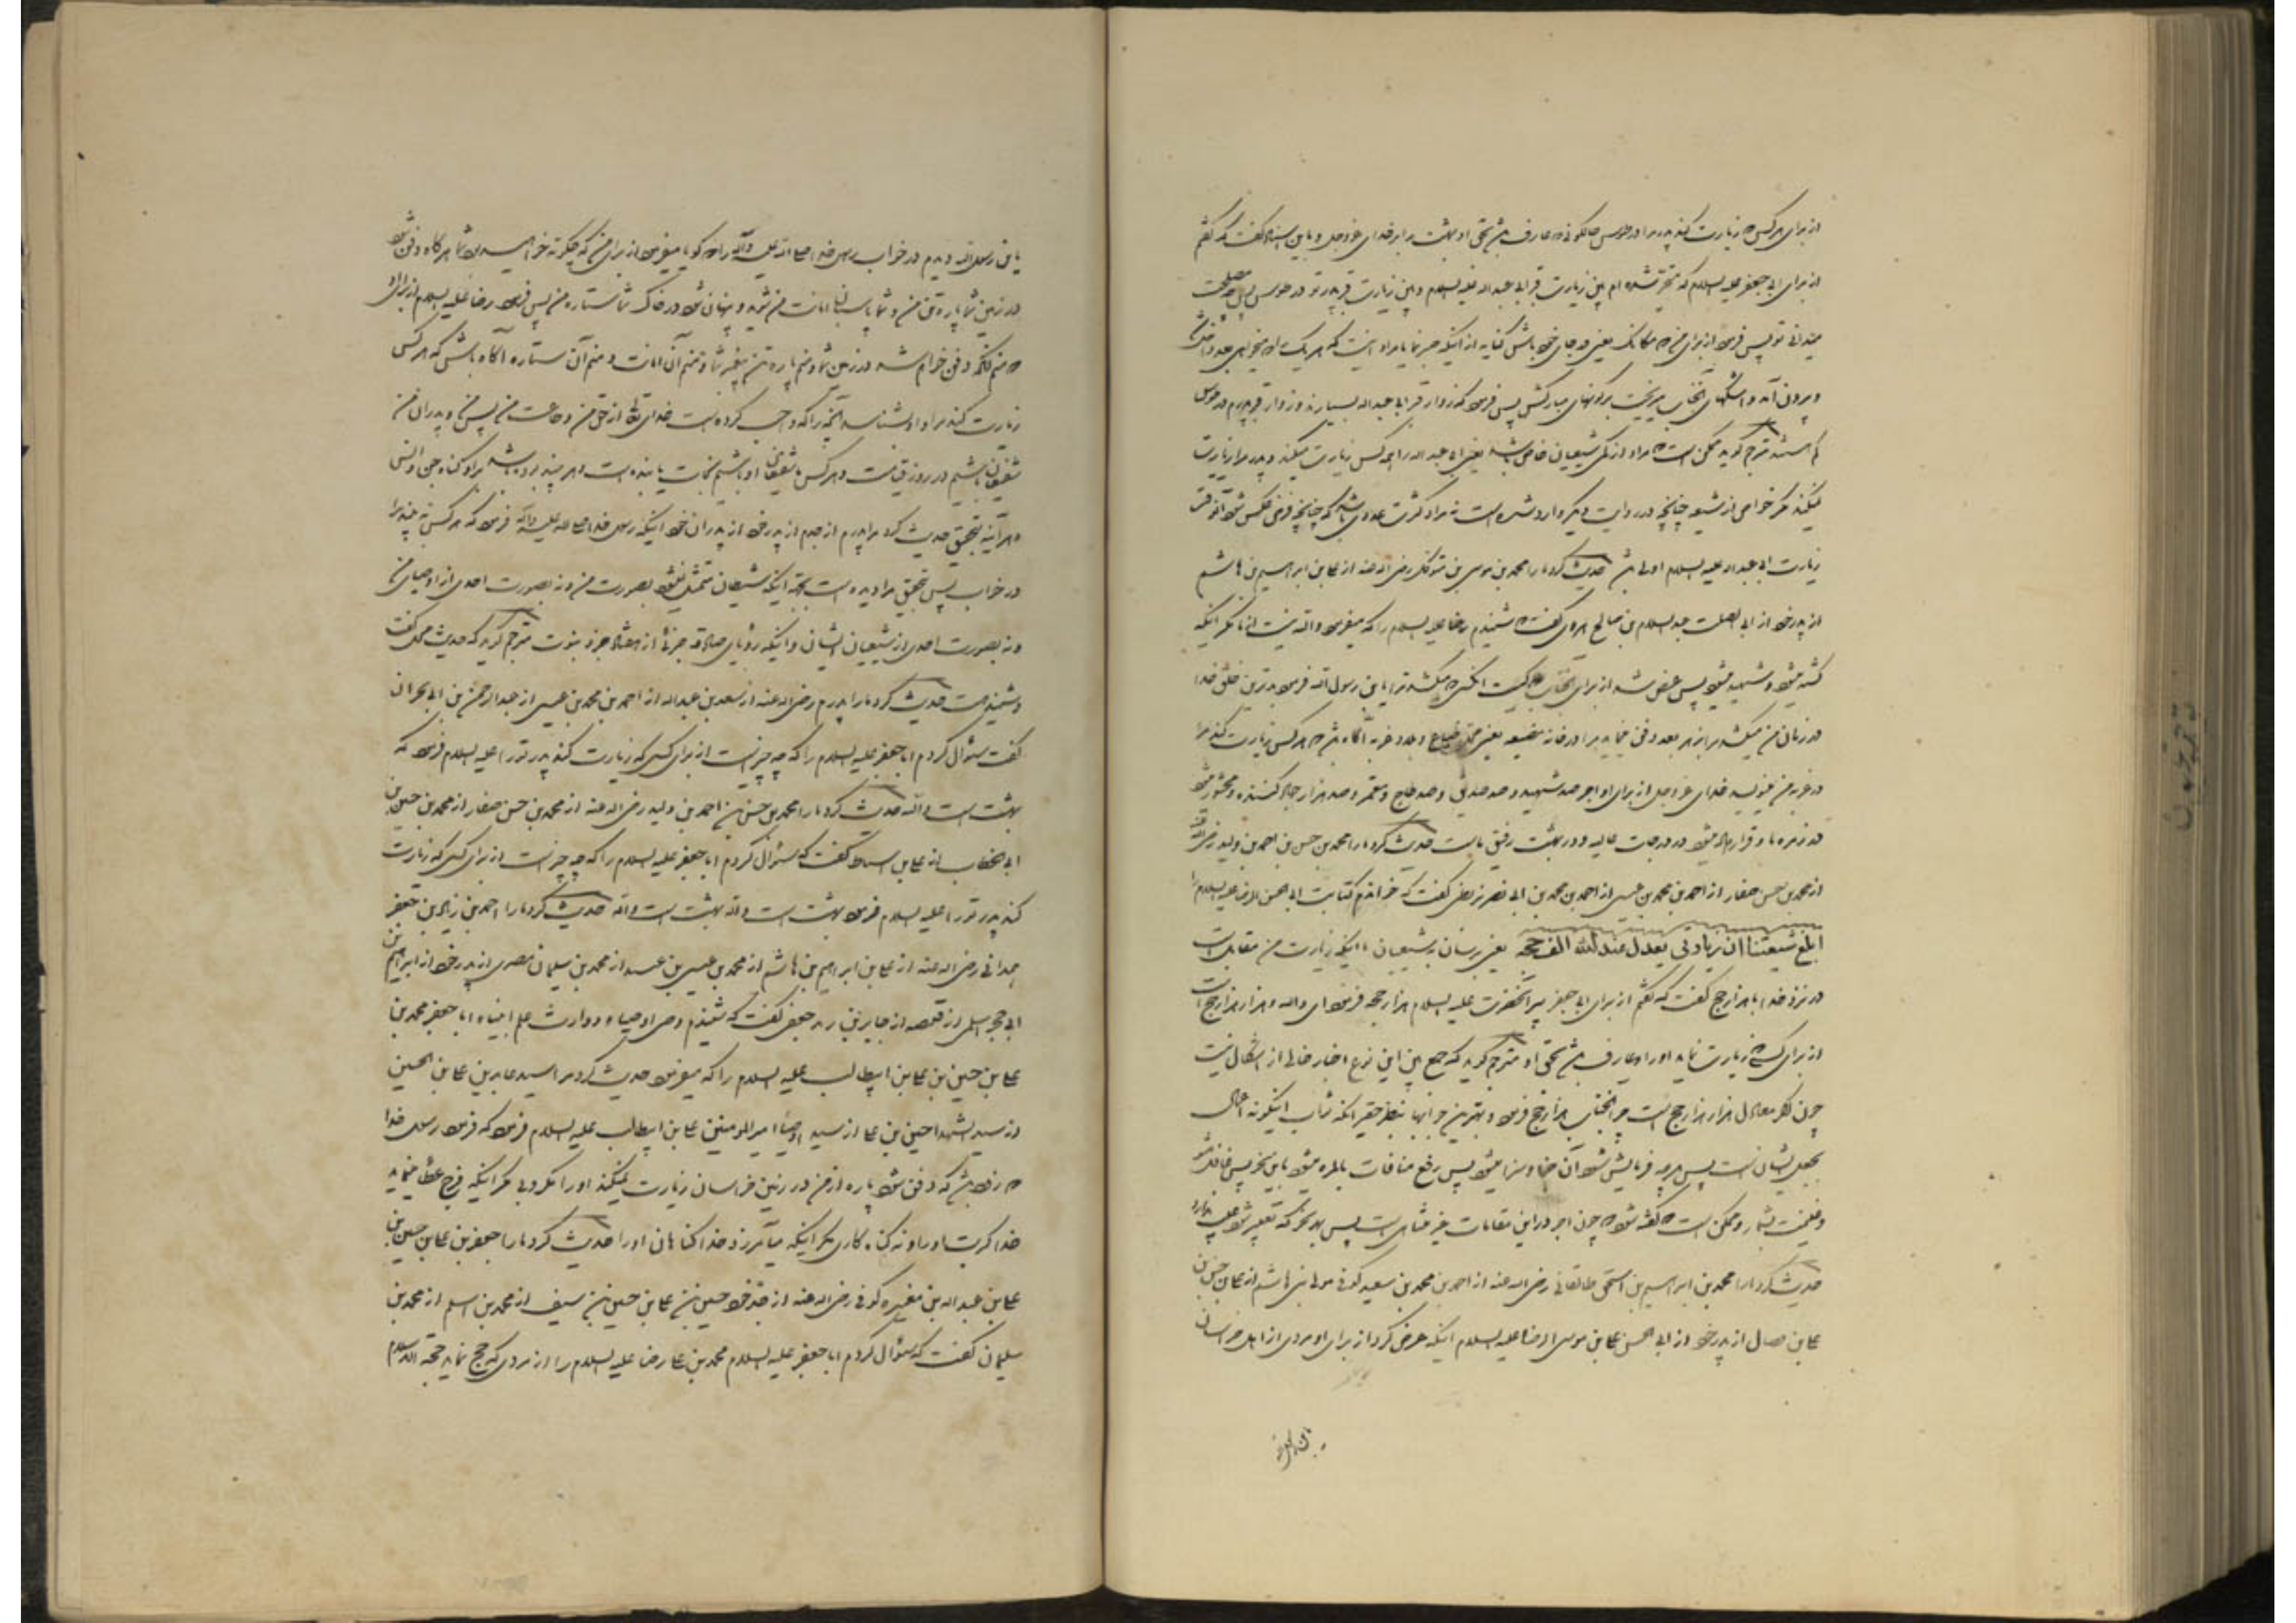 از برای هر کس که زیارت کند پدر مرا در طوس حالکونی که عارف باشد بحق او بهشت را بر خدای عز و جل و باین اسناد گفت که گفتم
از برای ابی جعفر علیه السلام که متحیر شده ام بین زیارت قبر ابی عبد الله علیه السلام و بین زیارت قبر پدر تو در طوس پس چه مصلحت
میدانی تو پس فرمود از برای من که مکانک یعنی در جای خود باش کنایه از اینکه
و بیرون آمد و اشکهای آنجناب میریخت بر گونهای مبارکش پس فرمود که زوار قبر ابی عبد الله بسیارند و زوار قبر پدرم در طوس
کم استند مترجم گوید ممکن است که مراد از شیعیان خاص باشد یعنی ابی عبد الله را همه کس زیارت میکند و پدر مرا زیارت
نمیکند مگر خواص از شیعه چنانچه در روایت دیگر وارد شده است نه مراد کثرت عددی باشد که چنانچه فرض عکس شود آنوقت
زیارت ابی عبد الله علیه السلام اولی باشد حدیث کرد ما را محمد بن موسی بن متوکل رضی الله عنه از علی بن ابراهیم بن هاشم
از پدر خود از ابی الصلت عبد السلام بن صالح هروی گفت که شنیدم رضا علیه السلام را که میفرمود والله نیست از ما مگر اینکه
کشته میشود و شهید میشود پس عرض شد از برای آنجناب که کیست آنکس که میکشد ترا یا بن رسول الله فرمود بدترین خلق خدا
در زمان من میکشد مرا بزهر بعد دفن مینماید مرا در خانه مضیعه یعنی محل ضیاع و بلاد غربه آگاه باش که هر کس زیارت کند مرا
در غربت من مینویسد خدای عز و جل از برای او اجر صد شهید و صد صدیق و صد حاج و معتمر و صد هزار جهاد کننده و محشور میشود
در زمره ما و قرار داده میشود در درجات عالیه و در بهشت رفیق ما است حدیث کرد ما را محمد بن حسن بن احمد بن ولید رضی الله عنه
از محمد بن حسن صفار از احمد بن محمد بن عیسی از احمد بن محمد بن ابی نصر بزنطی گفت که خواندم کتابت ابی الحسن الرضا علیه السلام را
ابلغ شیعتنا ان زیارتی یعدل عند الله الف حجه یعنی برسان بشیعیان ما اینکه زیارت من مقابل است
در نزد خدا با هزار حج گفت که گفتم از برای ابی جعفر پسر آنحضرت علیه السلام هزار حجه فرمود ای والله و هزار هزار حج است
از برای کسیکه زیارت نماید او را و عارف باشد بحق او مترجم گوید که جمع بین این نوع اخبار خالی از اشکال نیست
چون اگر معادل هزار هزار حج است چرا آنجناب هزار حج فرمود و بهترین جوابها بنظر حقیر آنکه ثواب اینگونه اعمال
بجعل ایشان است پس هر چه فرمایش شود آن خدا و سزا میشود پس رفع منافات بالمره میشود باین نحو پس غافل مشو
و غنیمت بشمار و ممکن است که گفته شود که چون اجر در این مقامات غیر متناهی است پس بهر نحو که تعبیر شود عیب ندارد
حدیث کرد ما را محمد بن ابراهیم بن اسحق طالقانی رضی الله عنه از احمد بن محمد بن سعید کوفی مولی بنی هاشم از علی بن حسن بن
علی بن فضال از پدر خود از ابی الحسن علی بن موسی الرضا علیه السلام اینکه عرض کرد از برای او مردی از اهل خراسان
یابن رسول الله دیدم در خواب رسول خدا صلی الله علیه و آله را که گویا میفرمود از برای من که چگونه خواهید بود شما هر گاه دفن شود
در زمین شما پاره تن من و شما پاسبان امانت من شوید و پنهان شود در خاک شما ستاره من پس فرمود رضا علیه السلام از برای او
که منم آنکه دفن خواهم شد در زمین شما و منم پاره تن پیغمبر شما و منم آن امانت و منم آن ستاره آگاه باش که هر کس
زیارت کند مرا و او بشناسد آنچه را که واجب کرده است خدای تعالی از حق من و طاعت من پس من و پدران من
شفیعان باشیم در روز قیامت و هر کس ما شفیعان او باشیم نجات یابنده است و هر چند بوده باشد بر او گناه جن و انس
و هر آینه بتحقیق حدیث کرد مرا پدرم از جدم از پدر خود از پدران خود اینکه رسول خدا صلی الله علیه و آله فرمود که هر کس به بیند مرا
در خواب پس بتحقیق مرا دیده است بجهة اینکه شیطان متمثل نمیشود بصورت من و نه بصورت احدی از اوصیای من
و نه بصورت احدی از شیعیان ایشان و اینکه رؤیای صادقه جزئی از هفتاد جزو نبوت مترجم گوید که حدیث محل گفت
و شنید است حدیث کرد ما را پدرم رضی الله عنه از سعد بن عبد الله از احمد بن محمد بن عیسی از عبد الرحمن بن ابی نجران
گفت سئوال کردم ابا جعفر علیه السلام را که چه چیز است از برای کسی که زیارت کند پدر تو را علیه السلام فرمود که
بهشت است والله حدیث کرد ما را محمد بن حسن بن احمد بن ولید رضی الله عنه از محمد بن حسن صفار از محمد بن حسین بن
ابی الخطاب از علی بن اسباط گفت که سئوال کردم ابا جعفر علیه السلام را که چه چیز است از برای کسی که زیارت
کند پدر تو را علیه السلام فرمود بهشت است والله بهشت است والله حدیث کرد ما را احمد بن زیاد بن جعفر
همدانی رضی الله عنه از علی بن ابراهیم بن هاشم از محمد بن عیسی بن عبید از محمد بن سلیمان مصری از پدر خود از ابراهیم بن
ابی حجر اسلمی از قبیصه از جابر بن یزید جعفی گفت که شنیدم وصی اوصیاء و وارث علم انبیاء ابا جعفر محمد بن
علی بن حسین بن علی بن ابیطالب علیه السلام را که میفرمود حدیث کرد مرا سید عابدین علی بن الحسین
از سید الشهدا حسین بن علی از سید اوصیا امیر المومنین علی بن ابیطالب علیه السلام فرمود که فرمود رسول خدا
که زود باشد که دفن شود پاره از من در زمین خراسان زیارت نمیکند او را مکروبی مگر اینکه فرج عطا مینماید
خدا کربت او را و نه گناه کاری مگر اینکه میآمرزد خدا گناهان او را حدیث کرد ما را جعفر بن علی بن حسین بن
علی بن عبد الله بن مغیره کوفی رضی الله عنه از جد خود حسین بن علی بن حسین بن سیف از محمد بن اسلم از محمد بن
سلیمان گفت که سئوال کردم ابا جعفر علیه السلام محمد بن علی رضا علیه السلام را از مردی که حج نماید حجة الاسلام